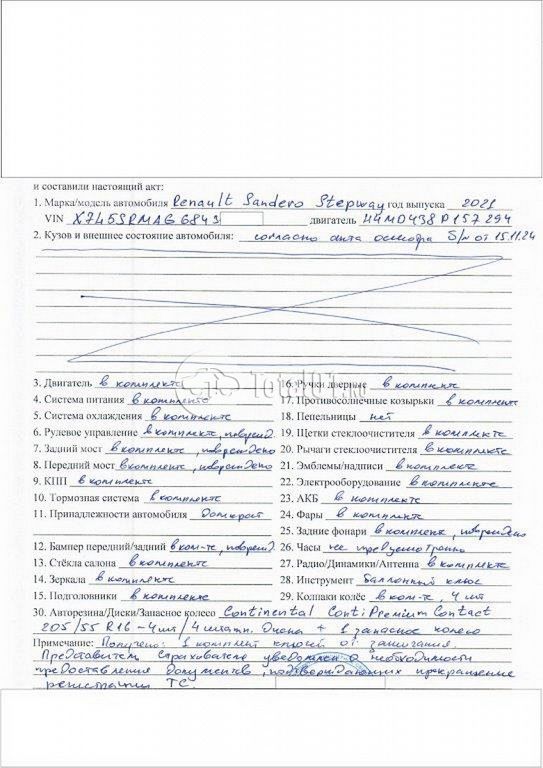 и составили настоящий акт:
1. Марка/модель автомобиля Renault Sandero Stepway год выпуска 2021
VIN X745SRMAG6843 двигатель H4MD438P157294
2. Кузов и внешнее состояние автомобиля: согласно акта осмотра Б/н от 15.11.24
3. Двигатель в комплекте
4. Система питания в комплекте
5. Система охлаждения в комплекте
6. Рулевое управление в комплекте, поврежд.
7. Задний мост в комплекте, повреждено
8. Передний мост в комплекте, повреждено
9. КПП в комплекте
10. Тормозная система в комплекте
11. Принадлежности автомобиля Домкрат
12. Бампер передний/задний в ком-те, поврежд.
13. Стёкла салона в комплекте
14. Зеркала в комплекте
15. Подголовники в комплекте
16. Ручки дверные в комплекте
17. Противосолнечные козырьки в комплекте
18. Пепельницы нет
19. Щетки стеклоочистителя в комплекте
20. Рычаги стеклоочистителя в комплекте
21. Эмблемы/надписи в комплекте
22. Электрооборудование в комплекте
23. АКБ в комплекте
24. Фары в комплекте
25. Задние фонари в комплек, повреждено
26. Часы не предусмотрены
27. Радио/Динамики/Антенна в комплекте
28. Инструмент Баллонный ключ
29. Колпаки колёс в ком-те, 4 шт
30. Авторезина/Диски/Запасное колесо Continental ContiPremiumContact
205/55 R16 - 4 шт/ 4 штатн. Диска + 1 запасное колесо
Примечание: Получено: 1 комплект ключей от зажигания.
Представитель страхователя уведомлен о необходимости
предоставления документов, подтверждающих прекращение
регистрации ТС.
Total01.ru